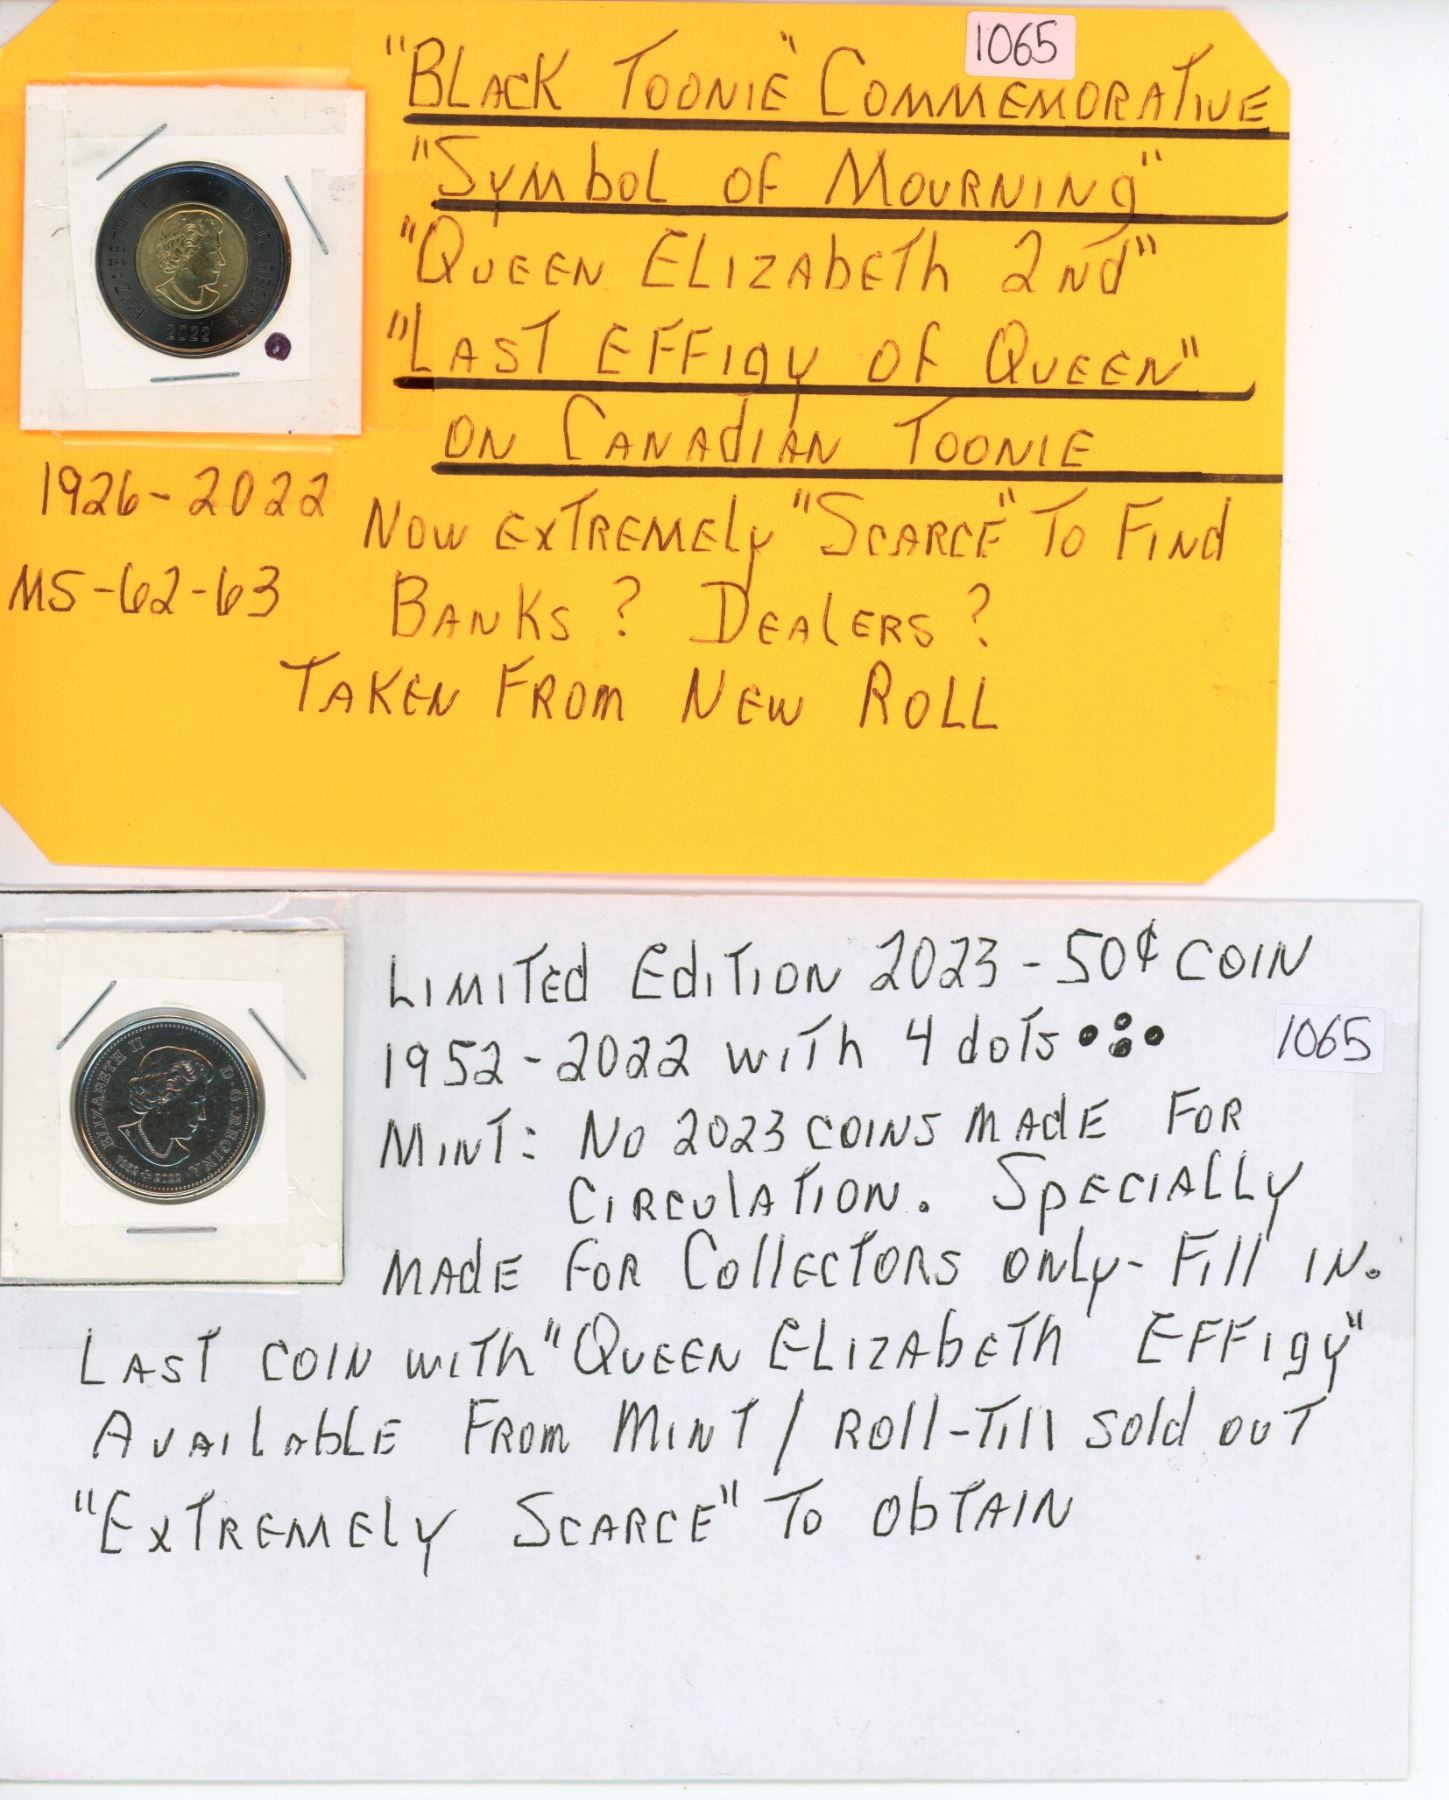 1065
"BLACK TOONIE" COMMEMORATIVE
"SYMBOL OF MOURNING"
"QUEEN ELIZABETH 2ND"
"LAST EFFIGY OF QUEEN"
ON CANADIAN TOONIE
ELIZABETH II D·G·REGINA
2022
1926-2022
MS-62-63
NOW EXTREMELY "SCARCE" TO FIND
BANKS? DEALERS?
TAKEN FROM NEW ROLL
LIMITED EDITION 2023-50¢ COIN
1952-2022 WITH 4 dOTS
1065
ELIZABETH II D·G·REGINA
1952 2022
MINT: NO 2023 COINS MADE FOR
CIRCULATION. SPECIALLY
MADE FOR COLLECTORS ONLY- FILL IN.
LAST COIN WITH "QUEEN ELIZABETH EFFIGY"
AVAILABLE FROM MINT / ROLL-TILL SOLD OUT
"EXTREMELY SCARCE" TO OBTAIN